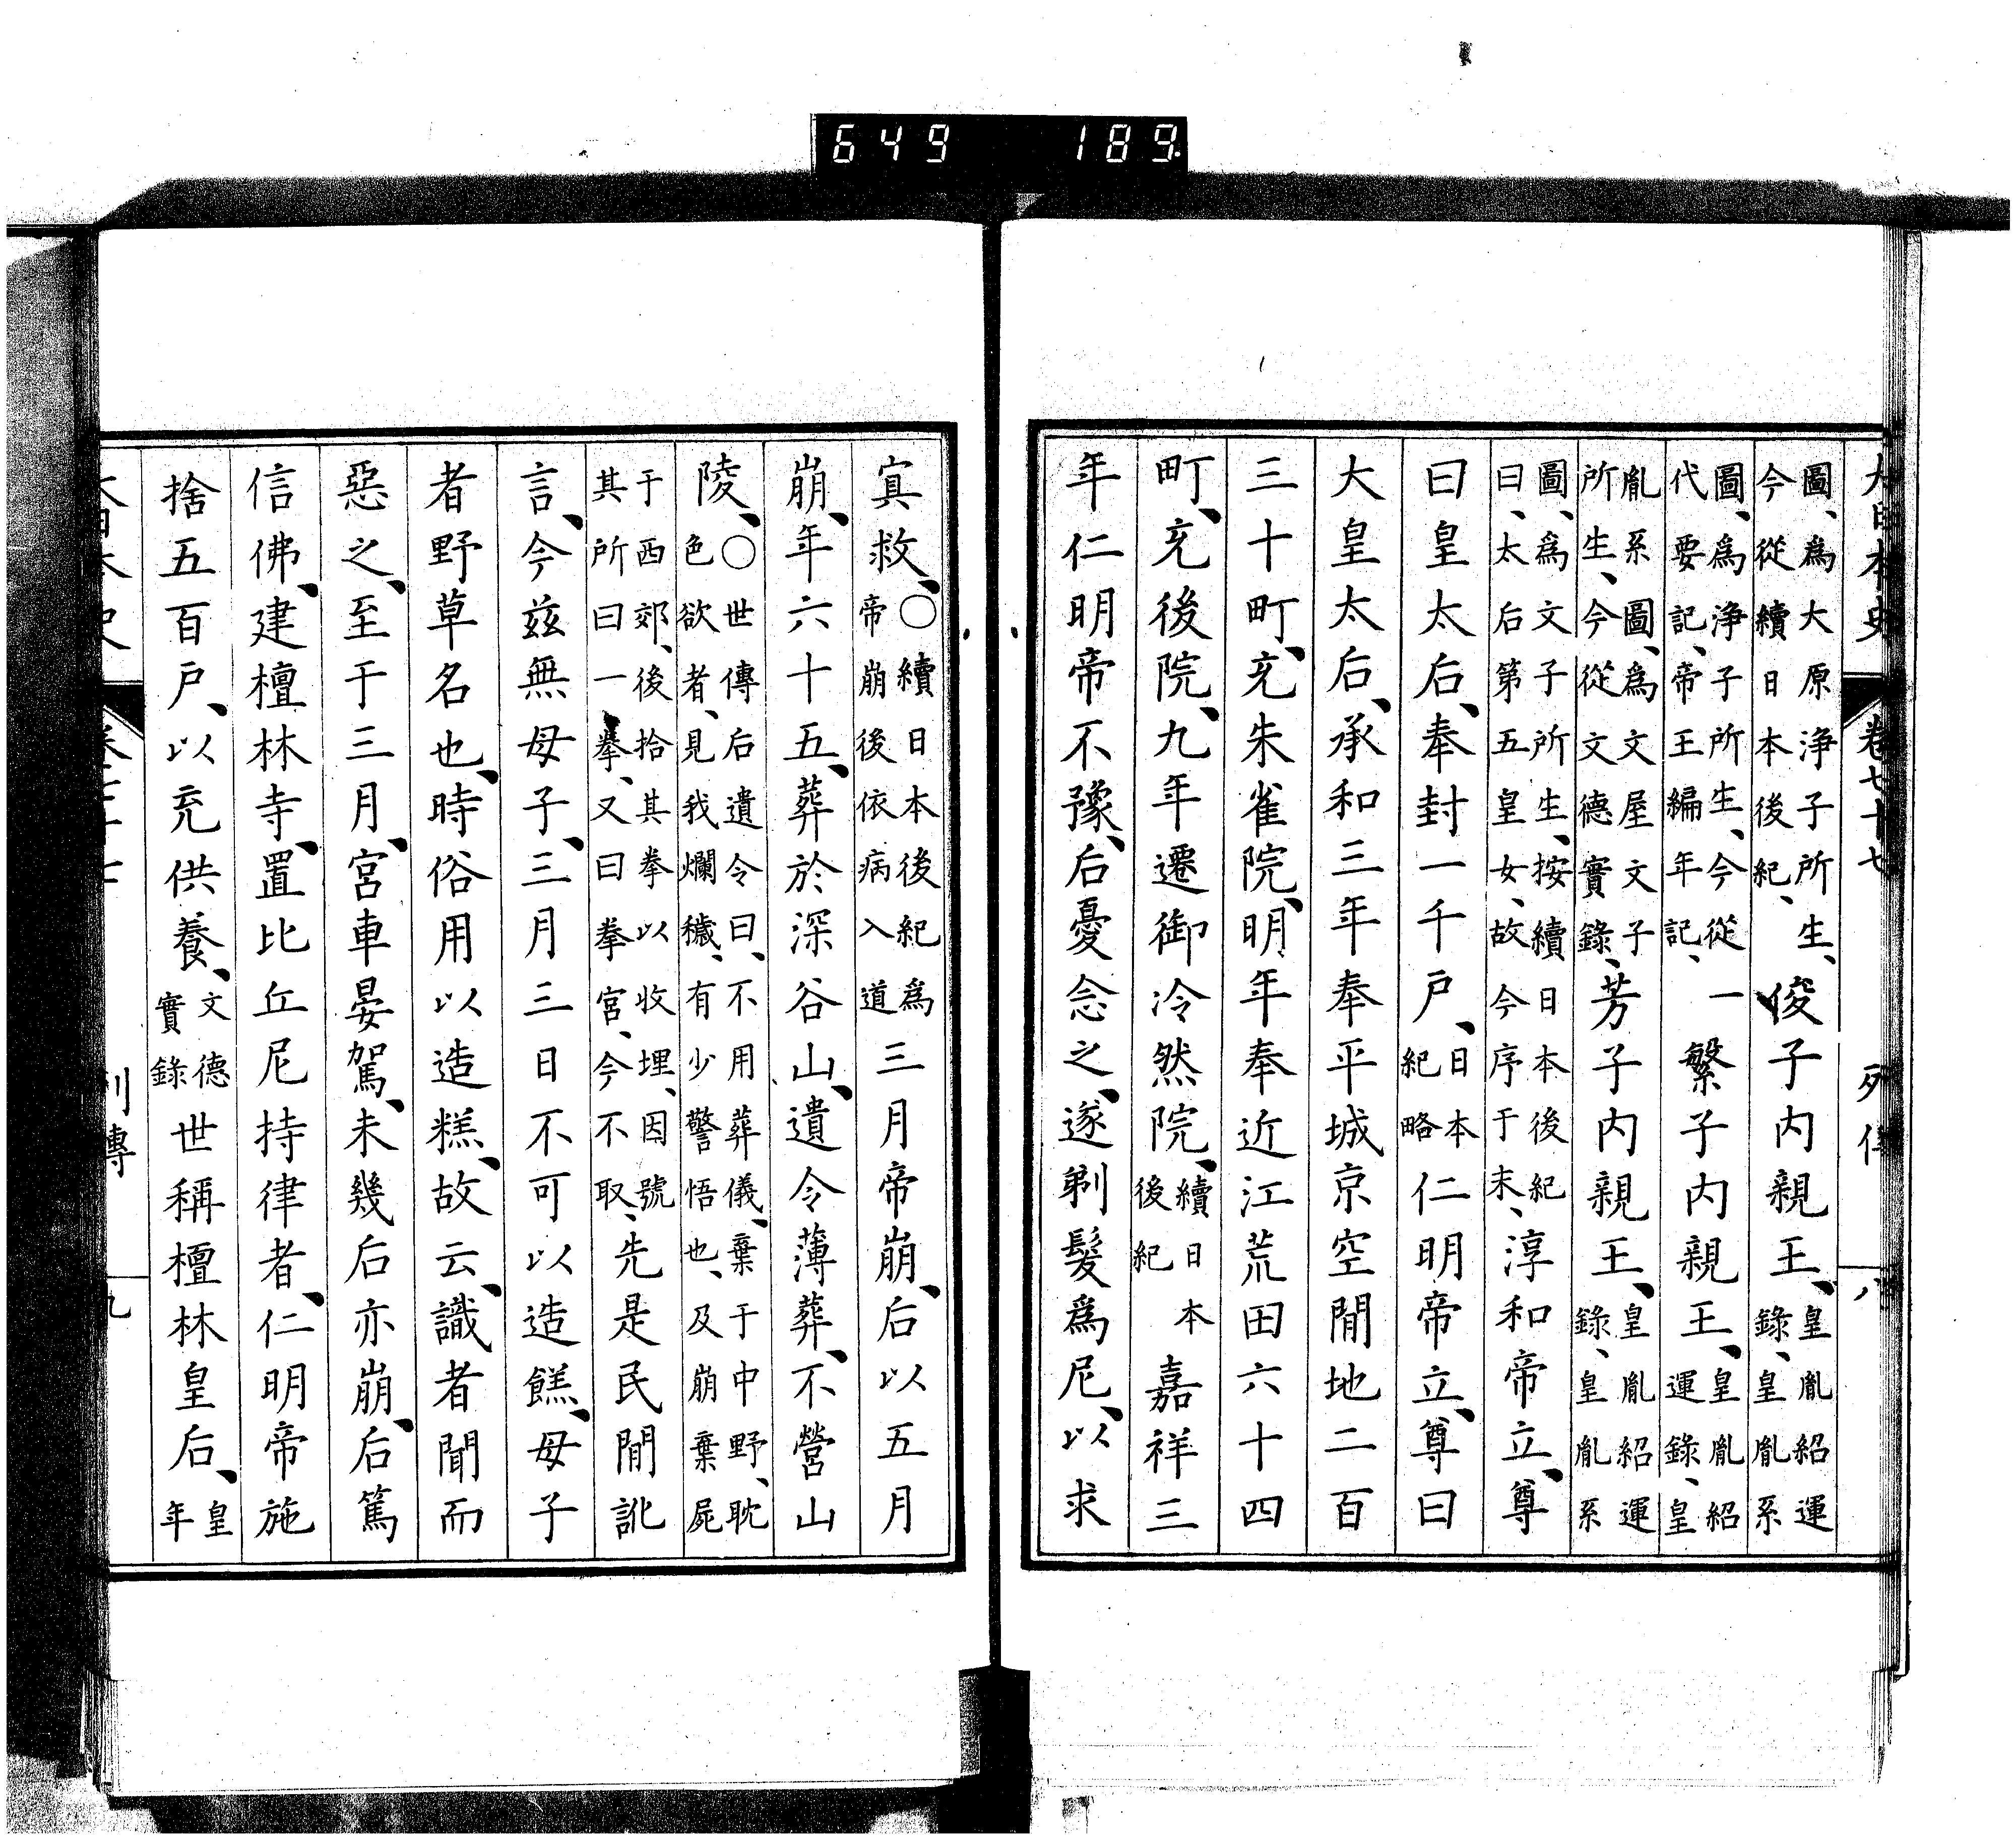 649 189.
大日本史 卷七十七 列傳 八
圖、爲大原淨子所生、今從續日本後紀、俊子內親王、皇胤紹運錄、皇胤系
圖、爲淨子所生、今從一代要記、帝王編年記、繁子內親王、皇胤紹運錄、皇
胤系圖、爲文屋文子所生、今從文德實錄、芳子內親王、皇胤紹運錄、皇胤系
圖、爲文子所生、按續日本後紀曰、太后第五皇女、故今序于末、淳和帝立、尊
曰皇太后、奉封一千戶、日本紀略仁明帝立、尊曰
大皇太后、承和三年奉平城京空閒地二百
三十町、充朱雀院、明年奉近江荒田六十四
町、充後院、九年遷御冷然院、續日本後紀嘉祥三
年仁明帝不豫、后憂念之、遂剃髮爲尼、以求
寘救、〇續日本後紀爲帝崩後依病入道三月帝崩、后以五月
崩、年六十五、葬於深谷山、遺令薄葬、不營山
陵、〇世傳后遺令曰、不用葬儀、棄于中野、耽色欲者、見我爛穢、有少警悟也、及崩棄屍
于西郊、後拾其拳以收埋、因號其所曰一拳、又曰拳宮、今不取、先是民閒訛
言、今茲無母子、三月三日不可以造餻、母子
者野草名也、時俗用以造糕、故云、識者聞而
惡之、至于三月、宮車晏駕、未幾后亦崩、后篤
信佛、建檀林寺、置比丘尼持律者、仁明帝施
捨五百戶、以充供養、文德實錄世稱檀林皇后、皇年
列傳 九